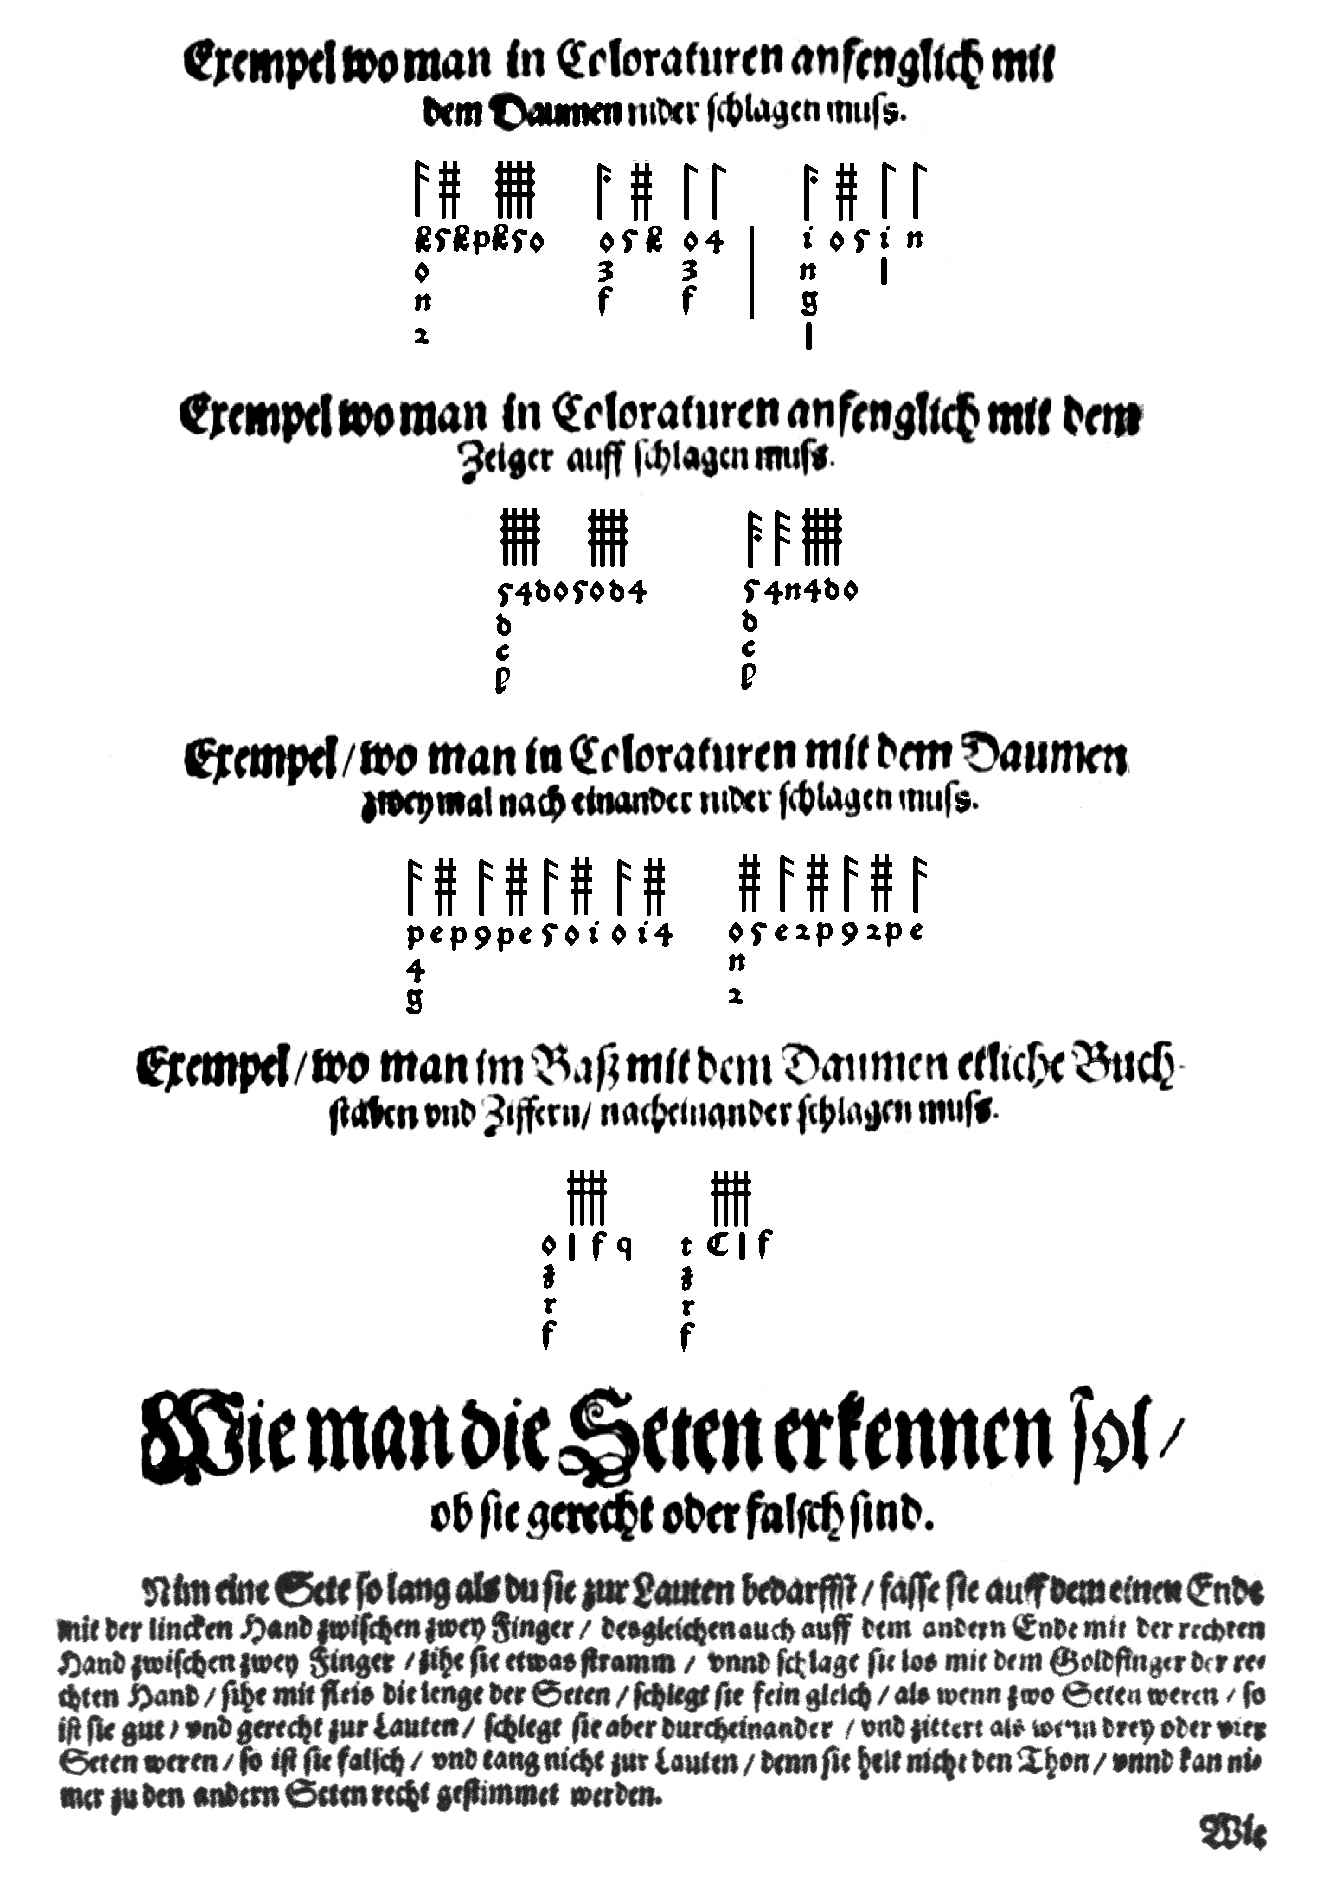 Exempel wo man in Coloraturen anfenglich mit
dem Daumen nider schlagen muss.
ꝛ 5 ꝛ p ꝛ 5 o o 5 ꝛ o 4 | i o 5 i n
o 3 3 n l
n f f g
2 l
Exempel wo man in Coloraturen anfenglich mit dem
Zeiger auff schlagen muss.
5 4 d o 5 o d 4 5 4 n 4 d o
d d
c c
p p
Exempel / wo man in Coloraturen mit dem Daumen
zweymal nach einander nider schlagen muss.
p e p 9 p e 5 o i o i 4 o 5 e 2 p 9 2 p e
4 n
g 2
Exempel / wo man im Baß mit dem Daumen etliche Buch-
staben vnd Ziffern / nacheinander schlagen muss.
o l f q t C l f
r r
f f
Wie man die Seten erkennen sol /
ob sie gerecht oder falsch sind.
Nim eine Sete so lang als du sie zur Lauten bedarffst / fasse sie auff dem einen Ende
mit der lincken Hand zwischen zwey Finger / desgleichen auch auff dem andern Ende mit der rechten
Hand zwischen zwey Finger / zihe sie etwas stramm / vnnd schlage sie los mit dem Goldfinger der rec-
chten Hand / sihe mit fleis die lenge der Seten / schlegt sie fein gleich / als wenn zwo Seten weren / so
ist sie gut / vnd gerecht zur Lauten / schlegt sie aber durcheinander / vnd zittert als wenn drey oder vier
Seten weren / so ist sie falsch / vnd taug nicht zur Lauten / denn sie helt nicht den Thon / vnnd kan nim-
mer zu den andern Seten recht gestimmet werden.
Wie